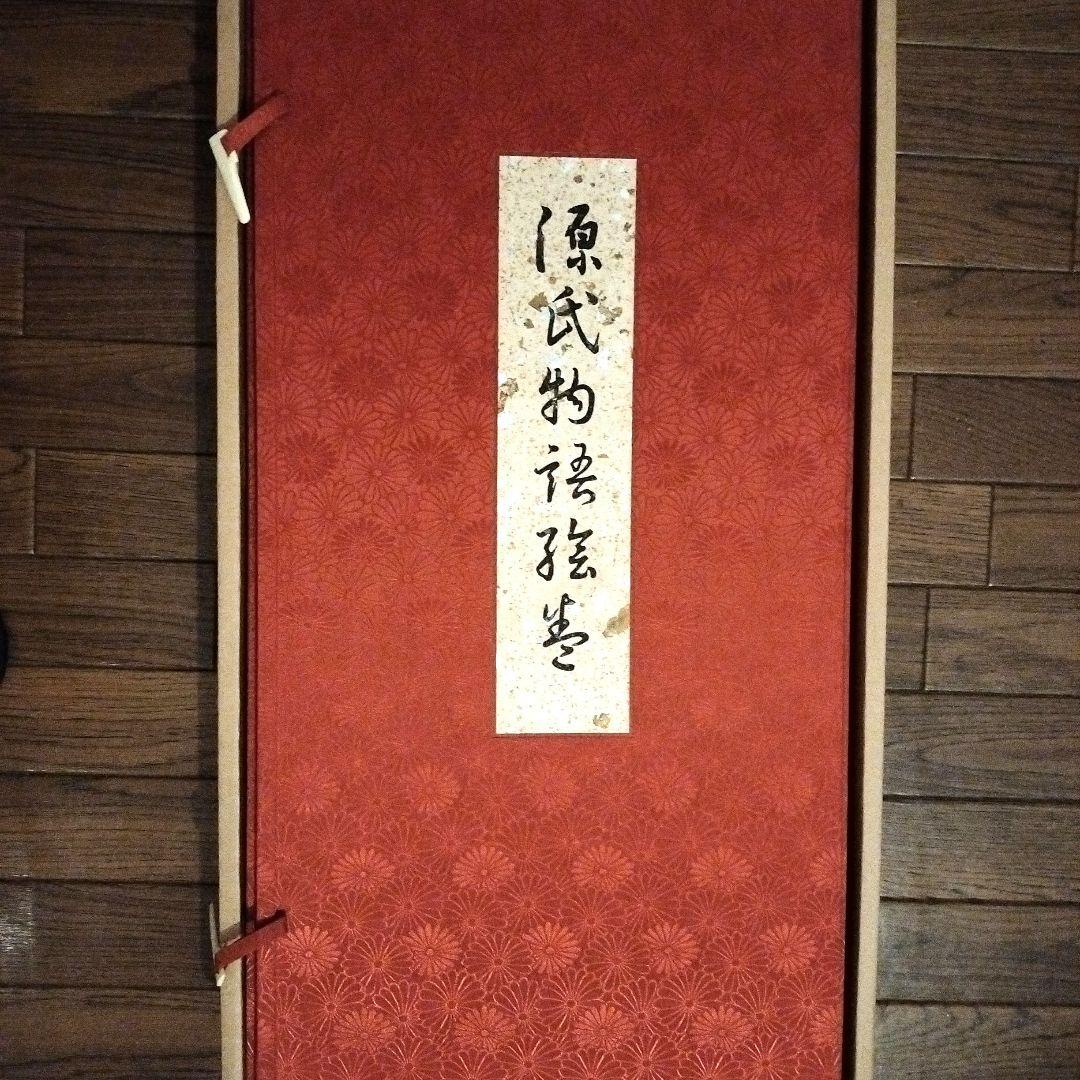 源氏物語絵巻